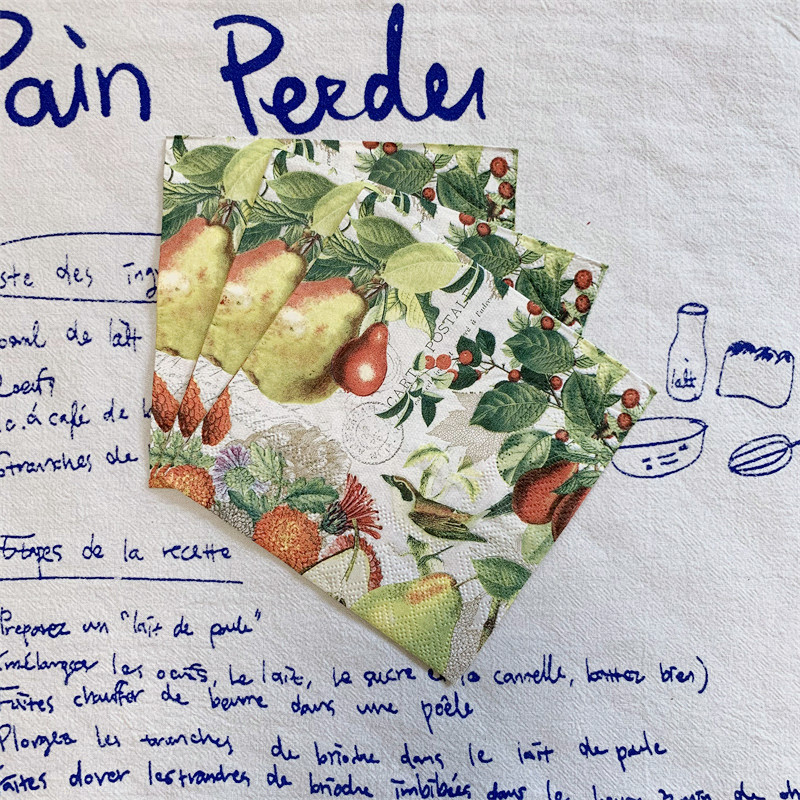 Pain Perdu
ste des ing
de lait
oeufs
c. à café de
tranches de
CARTE POSTALE
lait
Etapes de la recette
Préparez un "lait de poule"
(mélangez les oeufs, le lait, le sucre la cannelle, battez bien)
Faites chauffer de beurre dans une poêle
Plongez les tranches de brioche dans le lait de poule
Faites dorer les tranches de brioche imbibées dans le